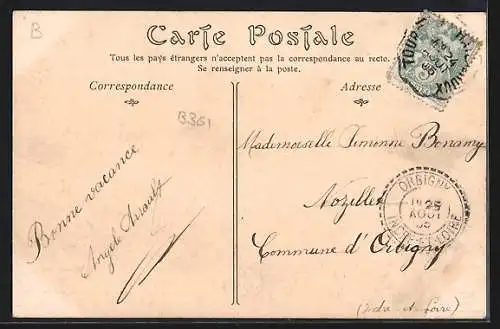 B
Carte Postale
Tous les pays étrangers n'acceptent pas la correspondance au recto.
Se renseigner à la poste.
Correspondance
Adresse
B361
Bonne vacance
Angèle Arrault
Mademoiselle Simonne Bonamy
Nozilles
Commune d'Orbigny
(Indre et Loire)
TOURS
ORBIGNY
25
AOUT
INDRE-ET-LOIRE